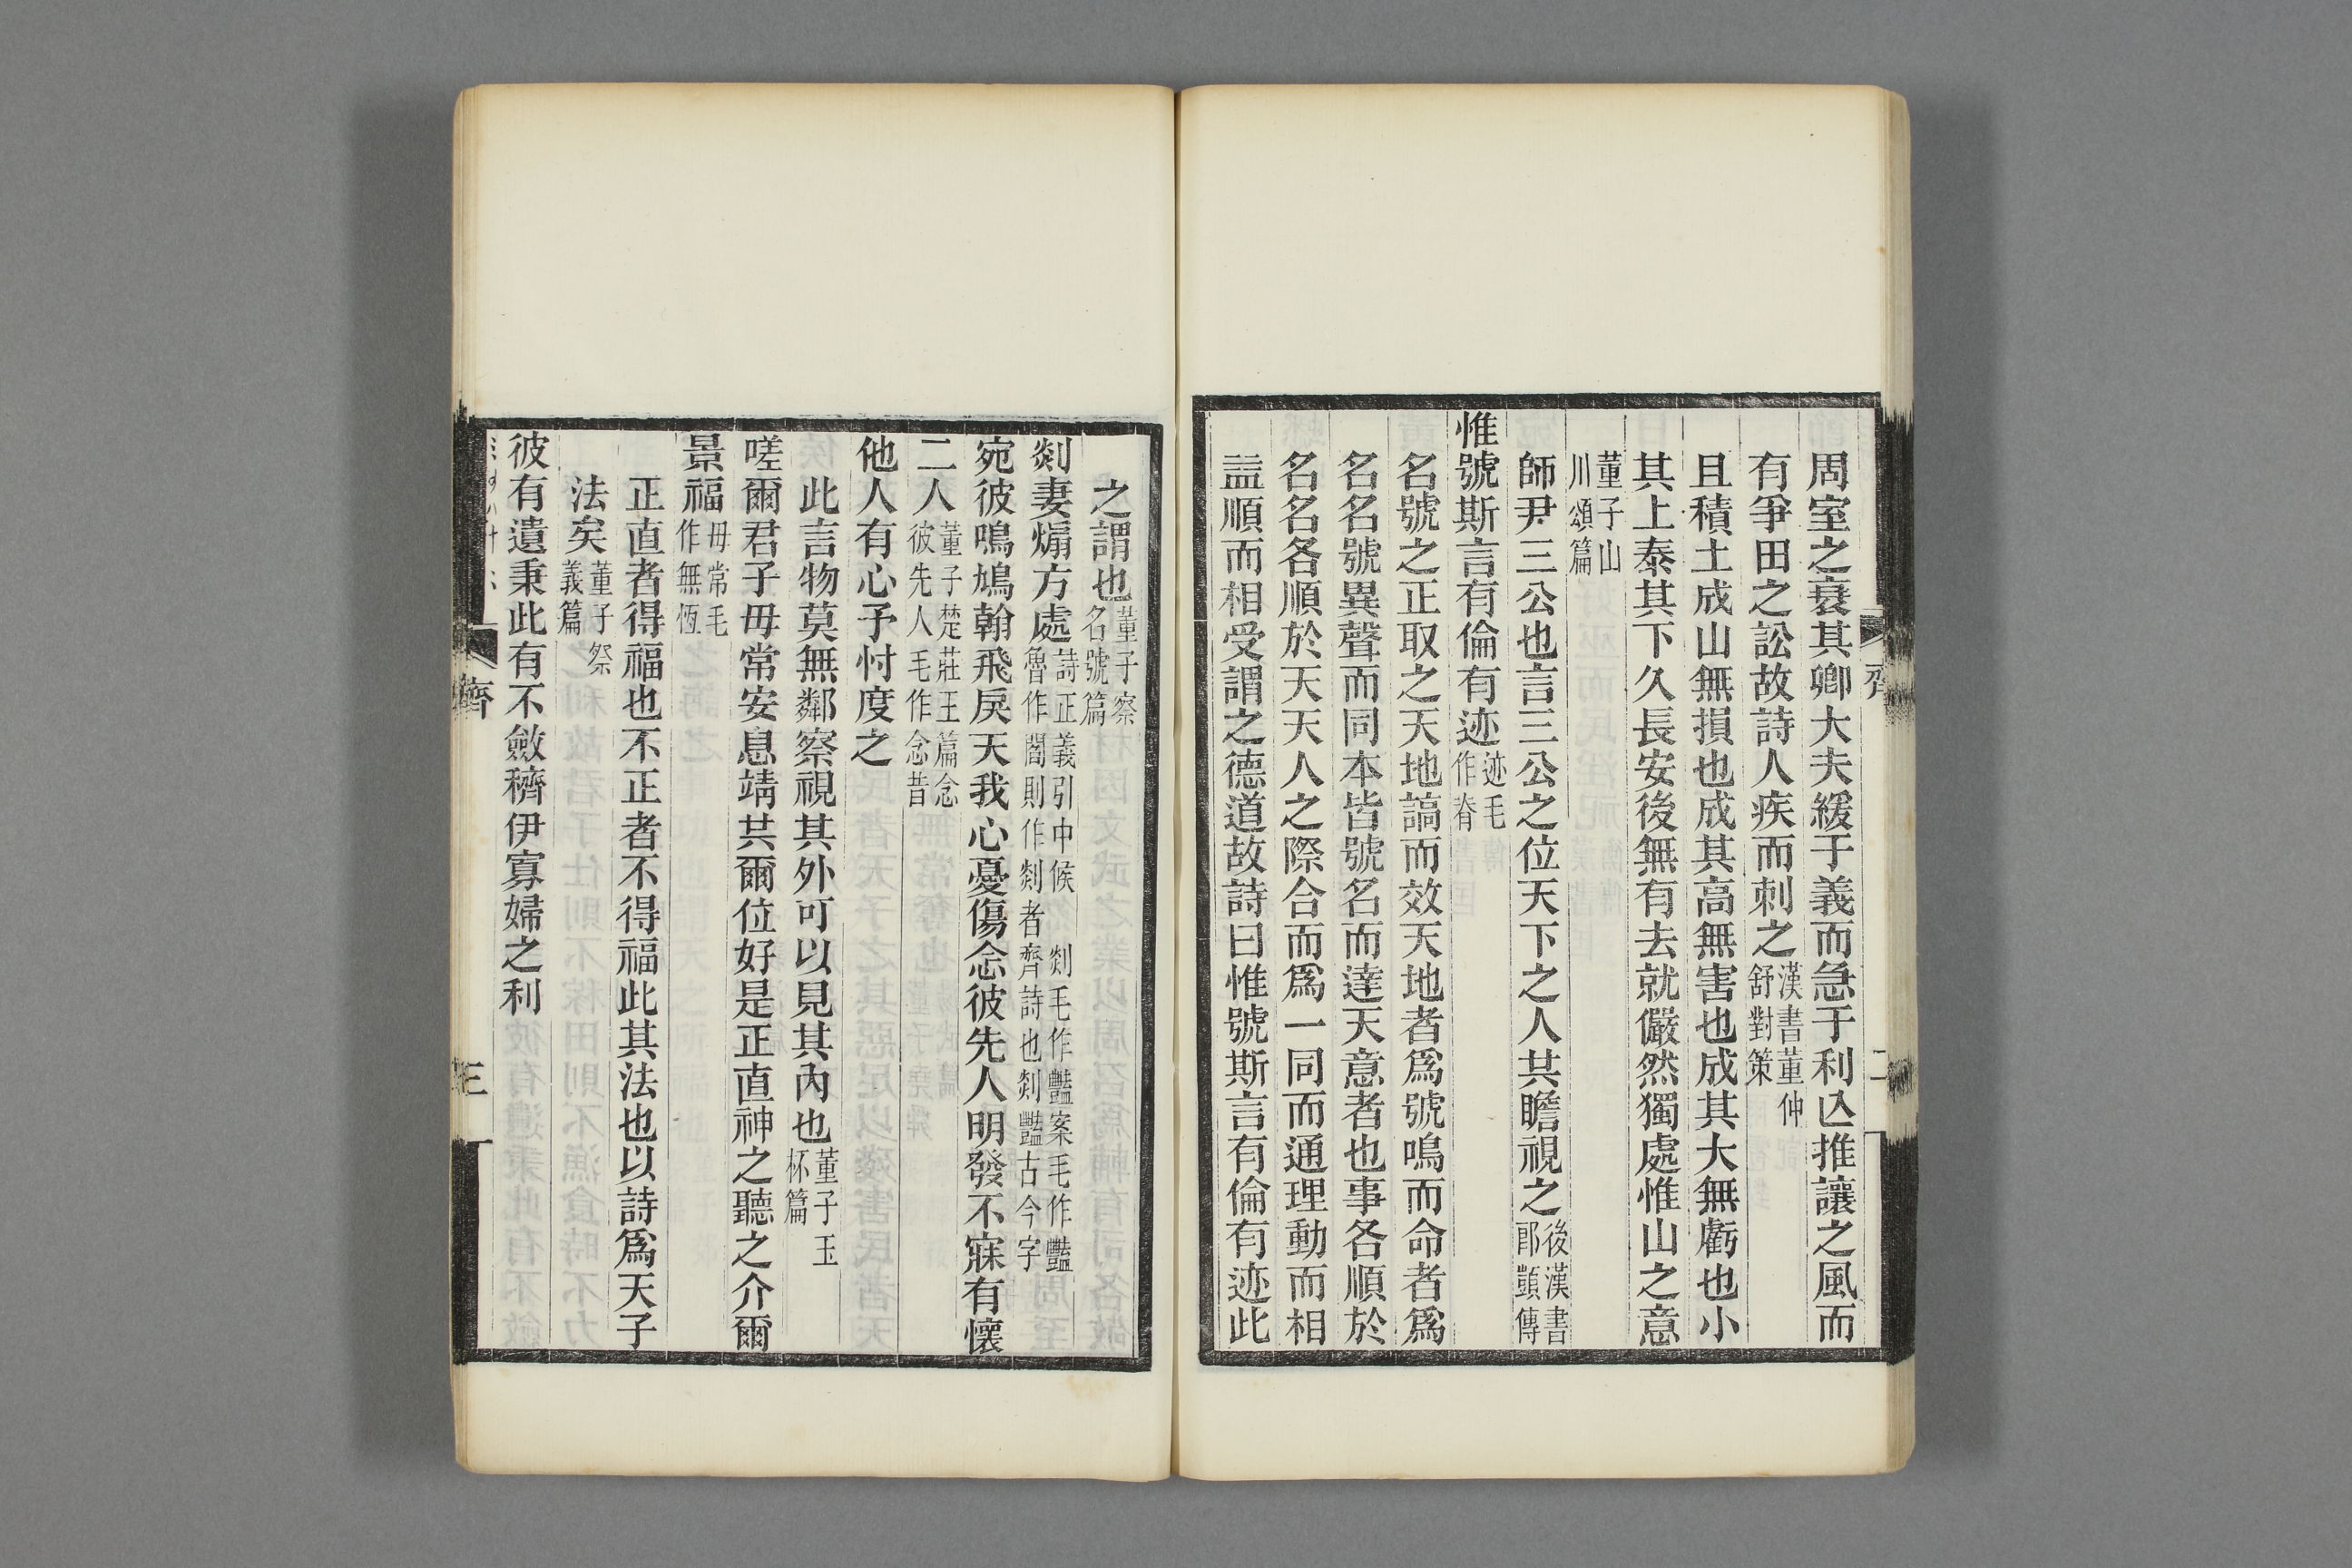 周室之衰其卿大夫緩于義而急于利亾推讓之風而
有爭田之訟故詩人疾而刺之漢書董仲舒對策
且積土成山無損也成其高無害也成其大無虧也小
其上泰其下久長安後無有去就儼然獨處惟山之意
董子山川頌篇
師尹三公也言三公之位天下之人共瞻視之後漢書郎顗傳
惟號斯言有倫有迹迹毛作脊
名號之正取之天地謞而效天地者爲號鳴而命者爲
名名號異聲而同本皆號名而達天意者也事各順於
名名各順於天天人之際合而爲一同而通理動而相
益順而相受謂之德道故詩曰惟號斯言有倫有迹此
齊
二
之謂也董子察名號篇
剡妻煽方處詩正義引中候剡毛作豔案毛作豔魯作閻則作剡者齊詩也剡豔古今字
宛彼鳴鳩翰飛戾天我心憂傷念彼先人明發不寐有懷
二人董子楚莊王篇念彼先人毛作念昔
他人有心予忖度之
此言物莫無鄰察視其外可以見其內也董子玉杯篇
嗟爾君子毋常安息靖共爾位好是正直神之聽之介爾
景福毋常毛作無恆
正直者得福也不正者不得福此其法也以詩爲天子
法矣董子祭義篇
彼有遺秉此有不斂穧伊寡婦之利
齊
三